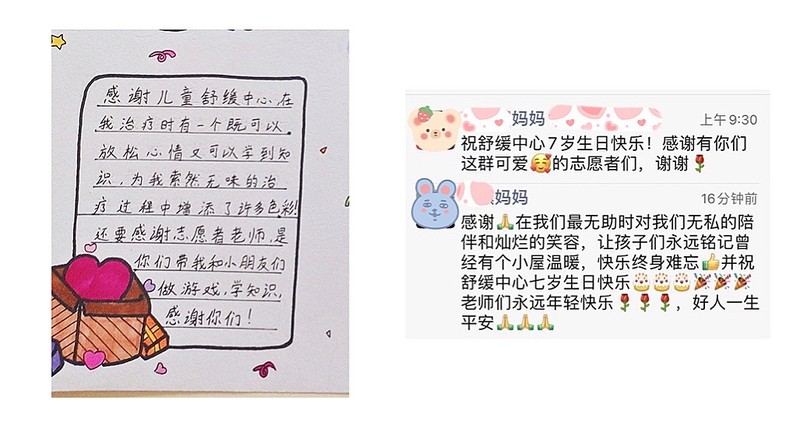 感谢儿童舒缓中心在
我治疗时有一个既可以
放松心情又可以学到知
识，为我索然无味的治
疗过程中增添了许多色彩!
还要感谢志愿者老师,是
你们带我和小朋友们
做游戏,学知识,
感谢你们!
妈妈
上午9:30
祝舒缓中心7岁生日快乐！感谢有你们
这群可爱🥰的志愿者们，谢谢🌹
妈妈
16分钟前
感谢🙏在我们最无助时对我们无私的陪
伴和灿烂的笑容，让孩子们永远铭记曾
经有个小屋温暖，快乐终身难忘👍并祝
舒缓中心七岁生日快乐🎂🎂🎂🎉🎉🎉
老师们永远年轻快乐🌹🌹🌹，好人一生
平安🙏🙏🙏